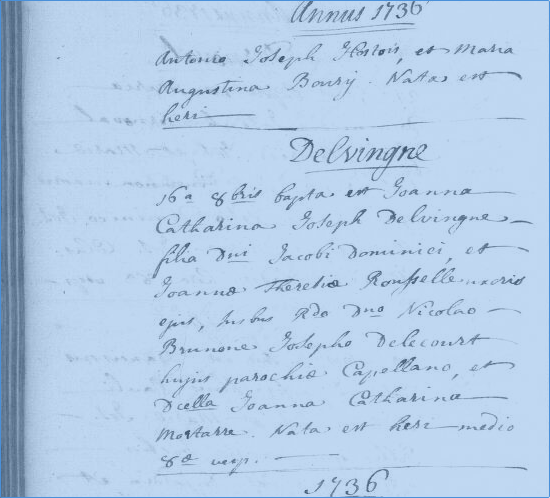 Annus 1736
Antonio Joseph et Maria
Augustina Boury. Nata est
heri
Delvingne
16a 8bris bapta est Joanna
Catharina Joseph Delvingne
filia Dni Jacobi Dominici, et
Joannæ Theresiæ Rousselle uxoris
ejus, susbus Rdo Dno Nicolao
Brunone Josepho Delecourt
hujus parochiæ Capellano, et
Dcella Joanna Catharina
Mortarre. Nata est heri medio
8æ vesp.
1736